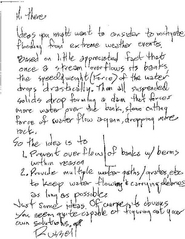 Hi there!
Ideas you might want to consider to mitigate
flooding from extreme weather events
Based on little appreciated fact that
once a stream overflows its banks
the speed/weight (Force) of the water
drops drastically. Then all suspended
solids drop forming a dam that forces
more water over the bank, slows cutting
force of water flow again, dropping more
rock.
So the idea is to
1. Prevent over flow of banks w/ berms
within reason
2. Provide multiple water paths/grates, etc
to keep water flowing & carrying debris
as long as possible
Just some ideas. Of course it's obvious
you seem quite capable of figuring out your
own solutions,
Russell